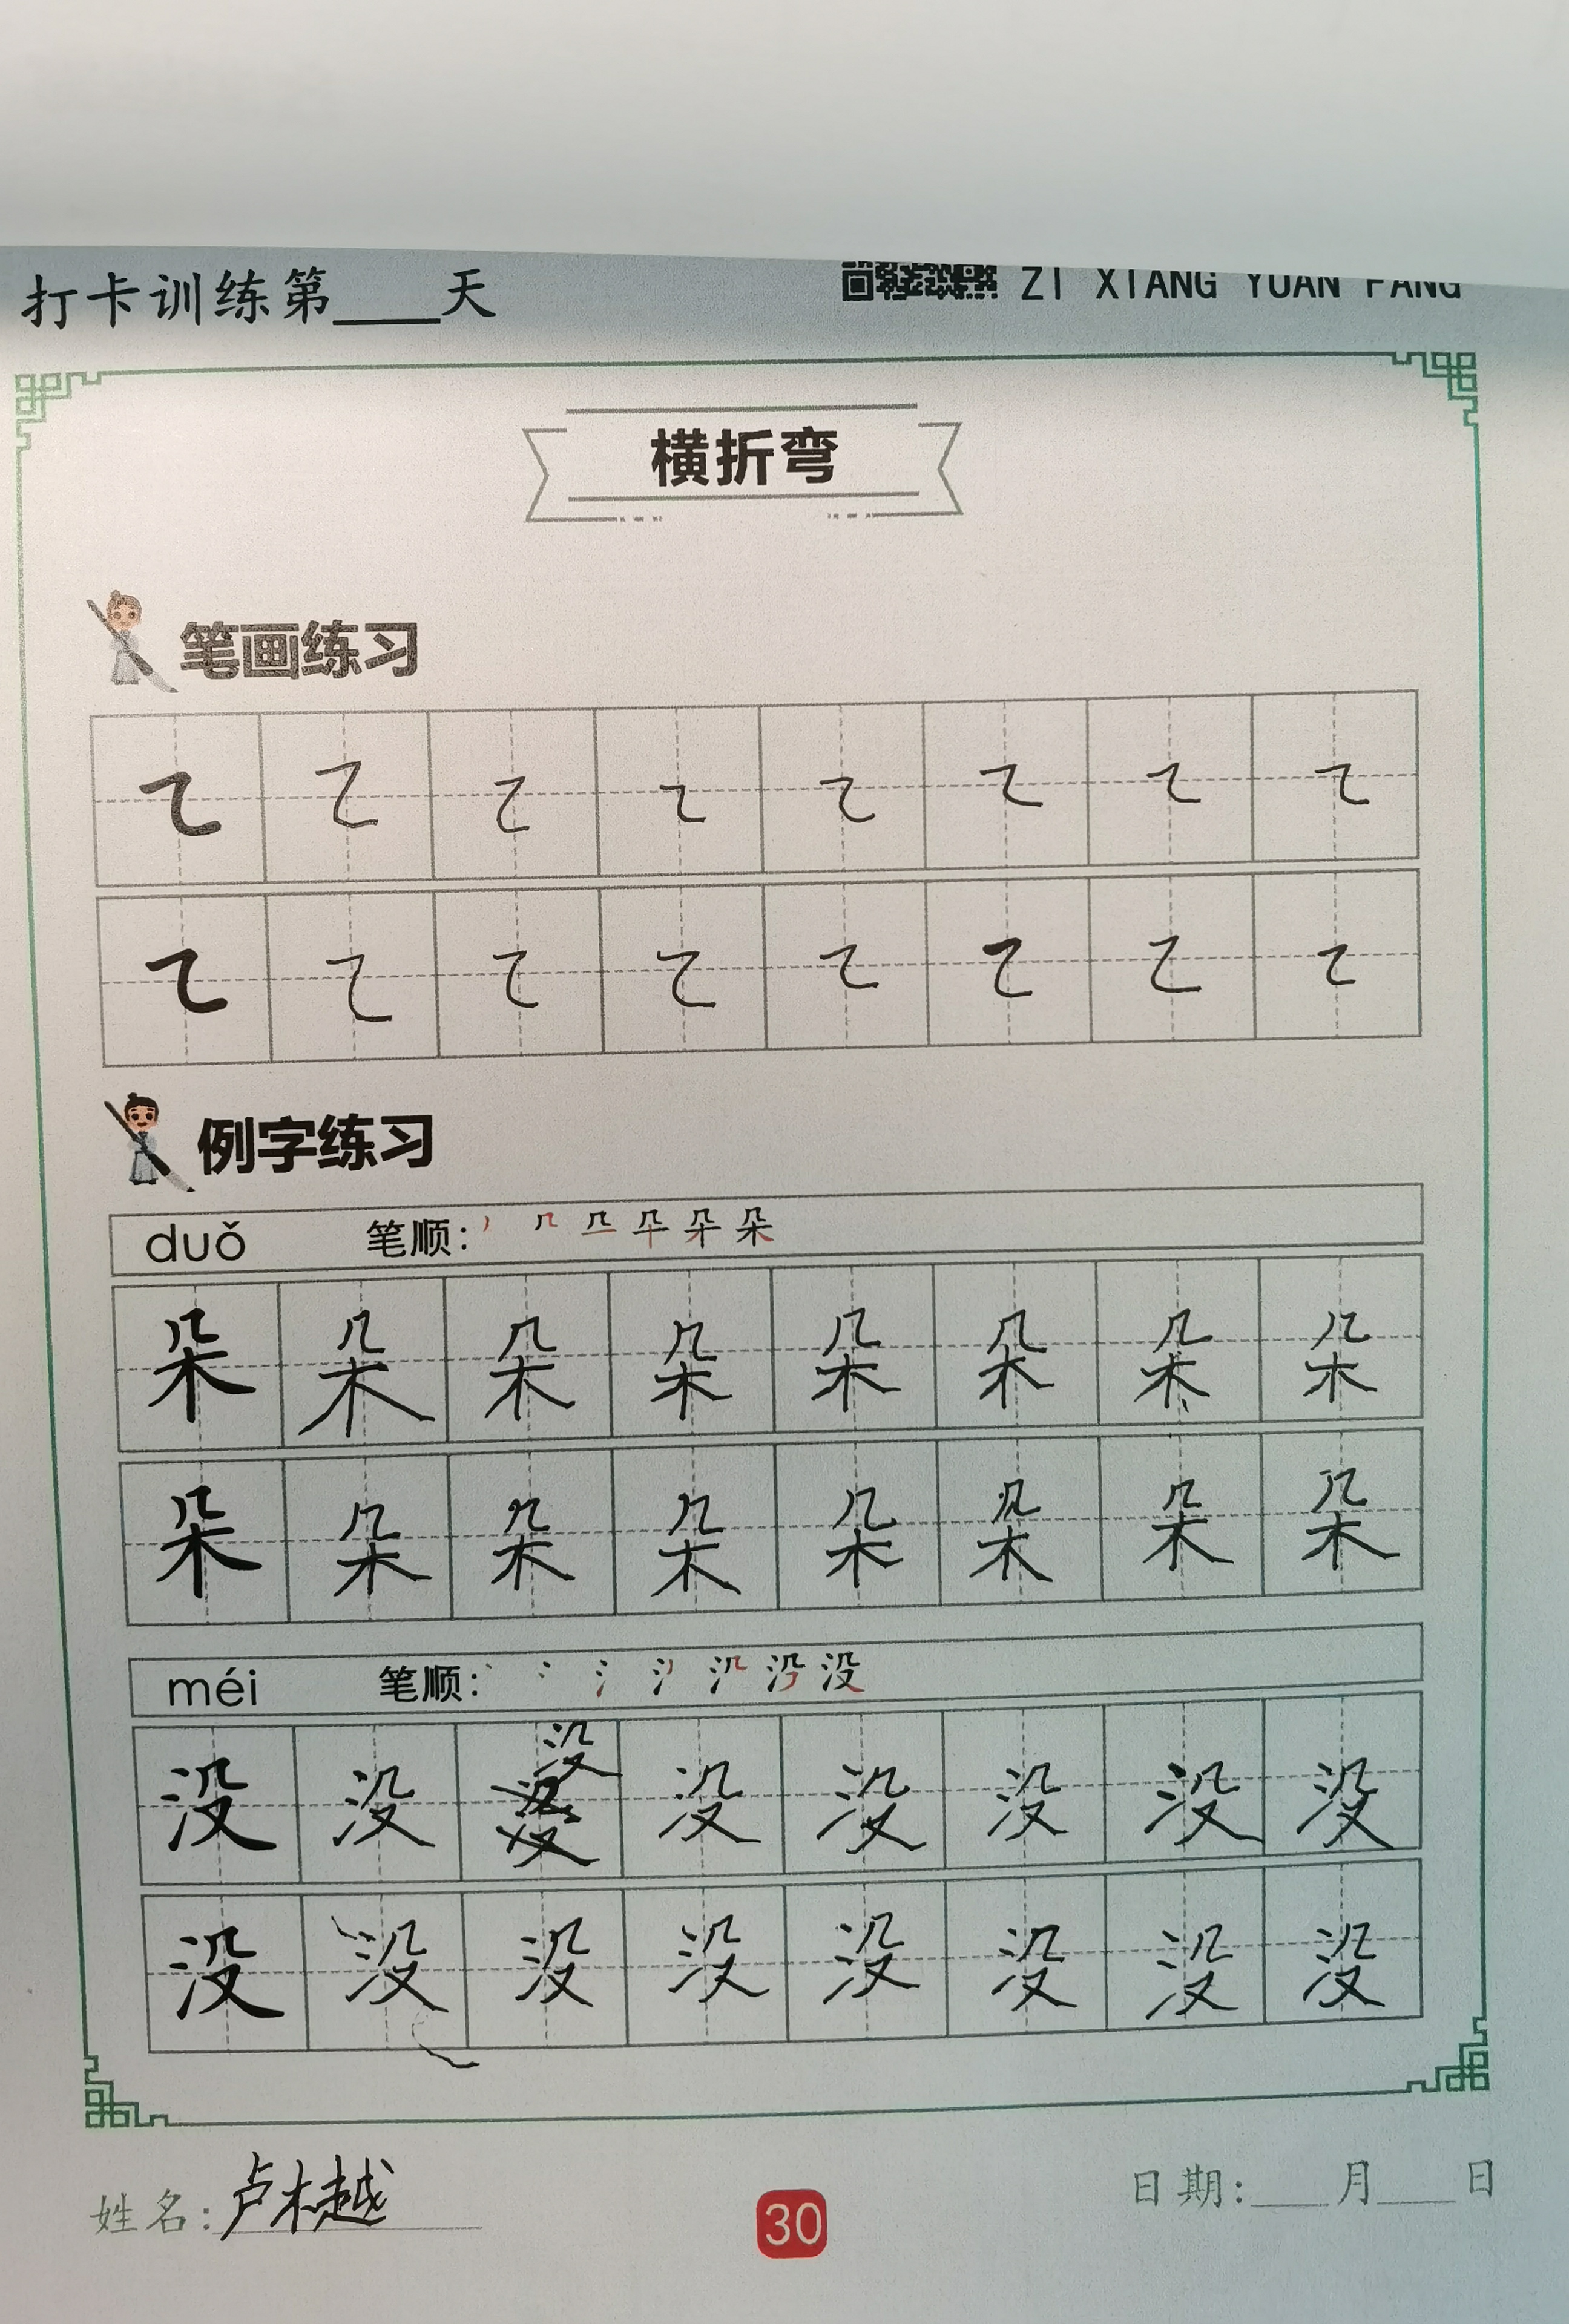 打卡训练第____天
ZI XIANG YUAN FANG
横折弯
笔画练习
㇍ ㇍ ㇍ ㇍ ㇍ ㇍ ㇍ ㇍
㇍ ㇍ ㇍ ㇍ ㇍ ㇍ ㇍ ㇍
例字练习
duǒ 笔顺: 朵
朵 朵 朵 朵 朵 朵 朵 朵
朵 朵 朵 朵 朵 朵 朵 朵
méi 笔顺: 没
没 没 没 没 没 没 没 没
没 没 没 没 没 没 没 没
姓名:卢木越
30
日期:___月___日